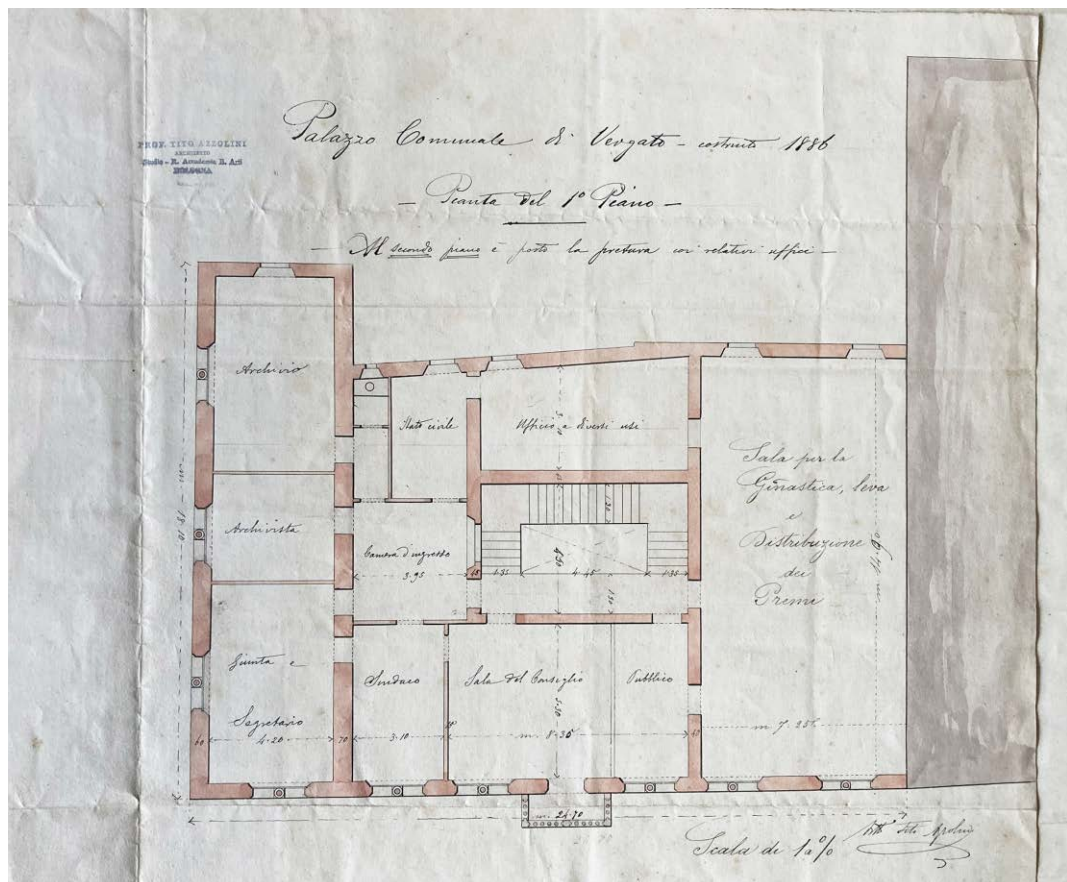 PROF. TITO AZZOLINI
ARCHITETTO
Studio - R. Accademia B. Arti
BOLOGNA
Palazzo Comunale di Vergato - costruito 1886
- Pianta del 1º Piano -
- Al secondo piano è posto la pretura coi relativi uffici -
Archivio
Stato civile
Ufficio a diversi usi
Sala per la
Ginastica, leva
e
Distribuzione
dei
Premi
Archivista
Camera d'ingresso
3.95
45
1.35
4.45
1.35
4.50
1.30
1.50
m. 18.10
m. 14.90
Giunta e
Segretario
Sindaco
Sala del Consiglio
Pubblico
60
4.20
70
3.10
m. 8.35
5.50
m. 7.25
m. 24.70
Scala di 1 a %